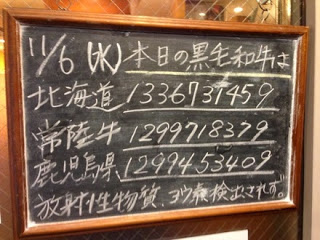 11/6(水)本日の黒毛和牛は
北海道 1336731459
常陸牛 1299718379
鹿児島県 1299453409
放射性物質、ヨウ素検出されず。